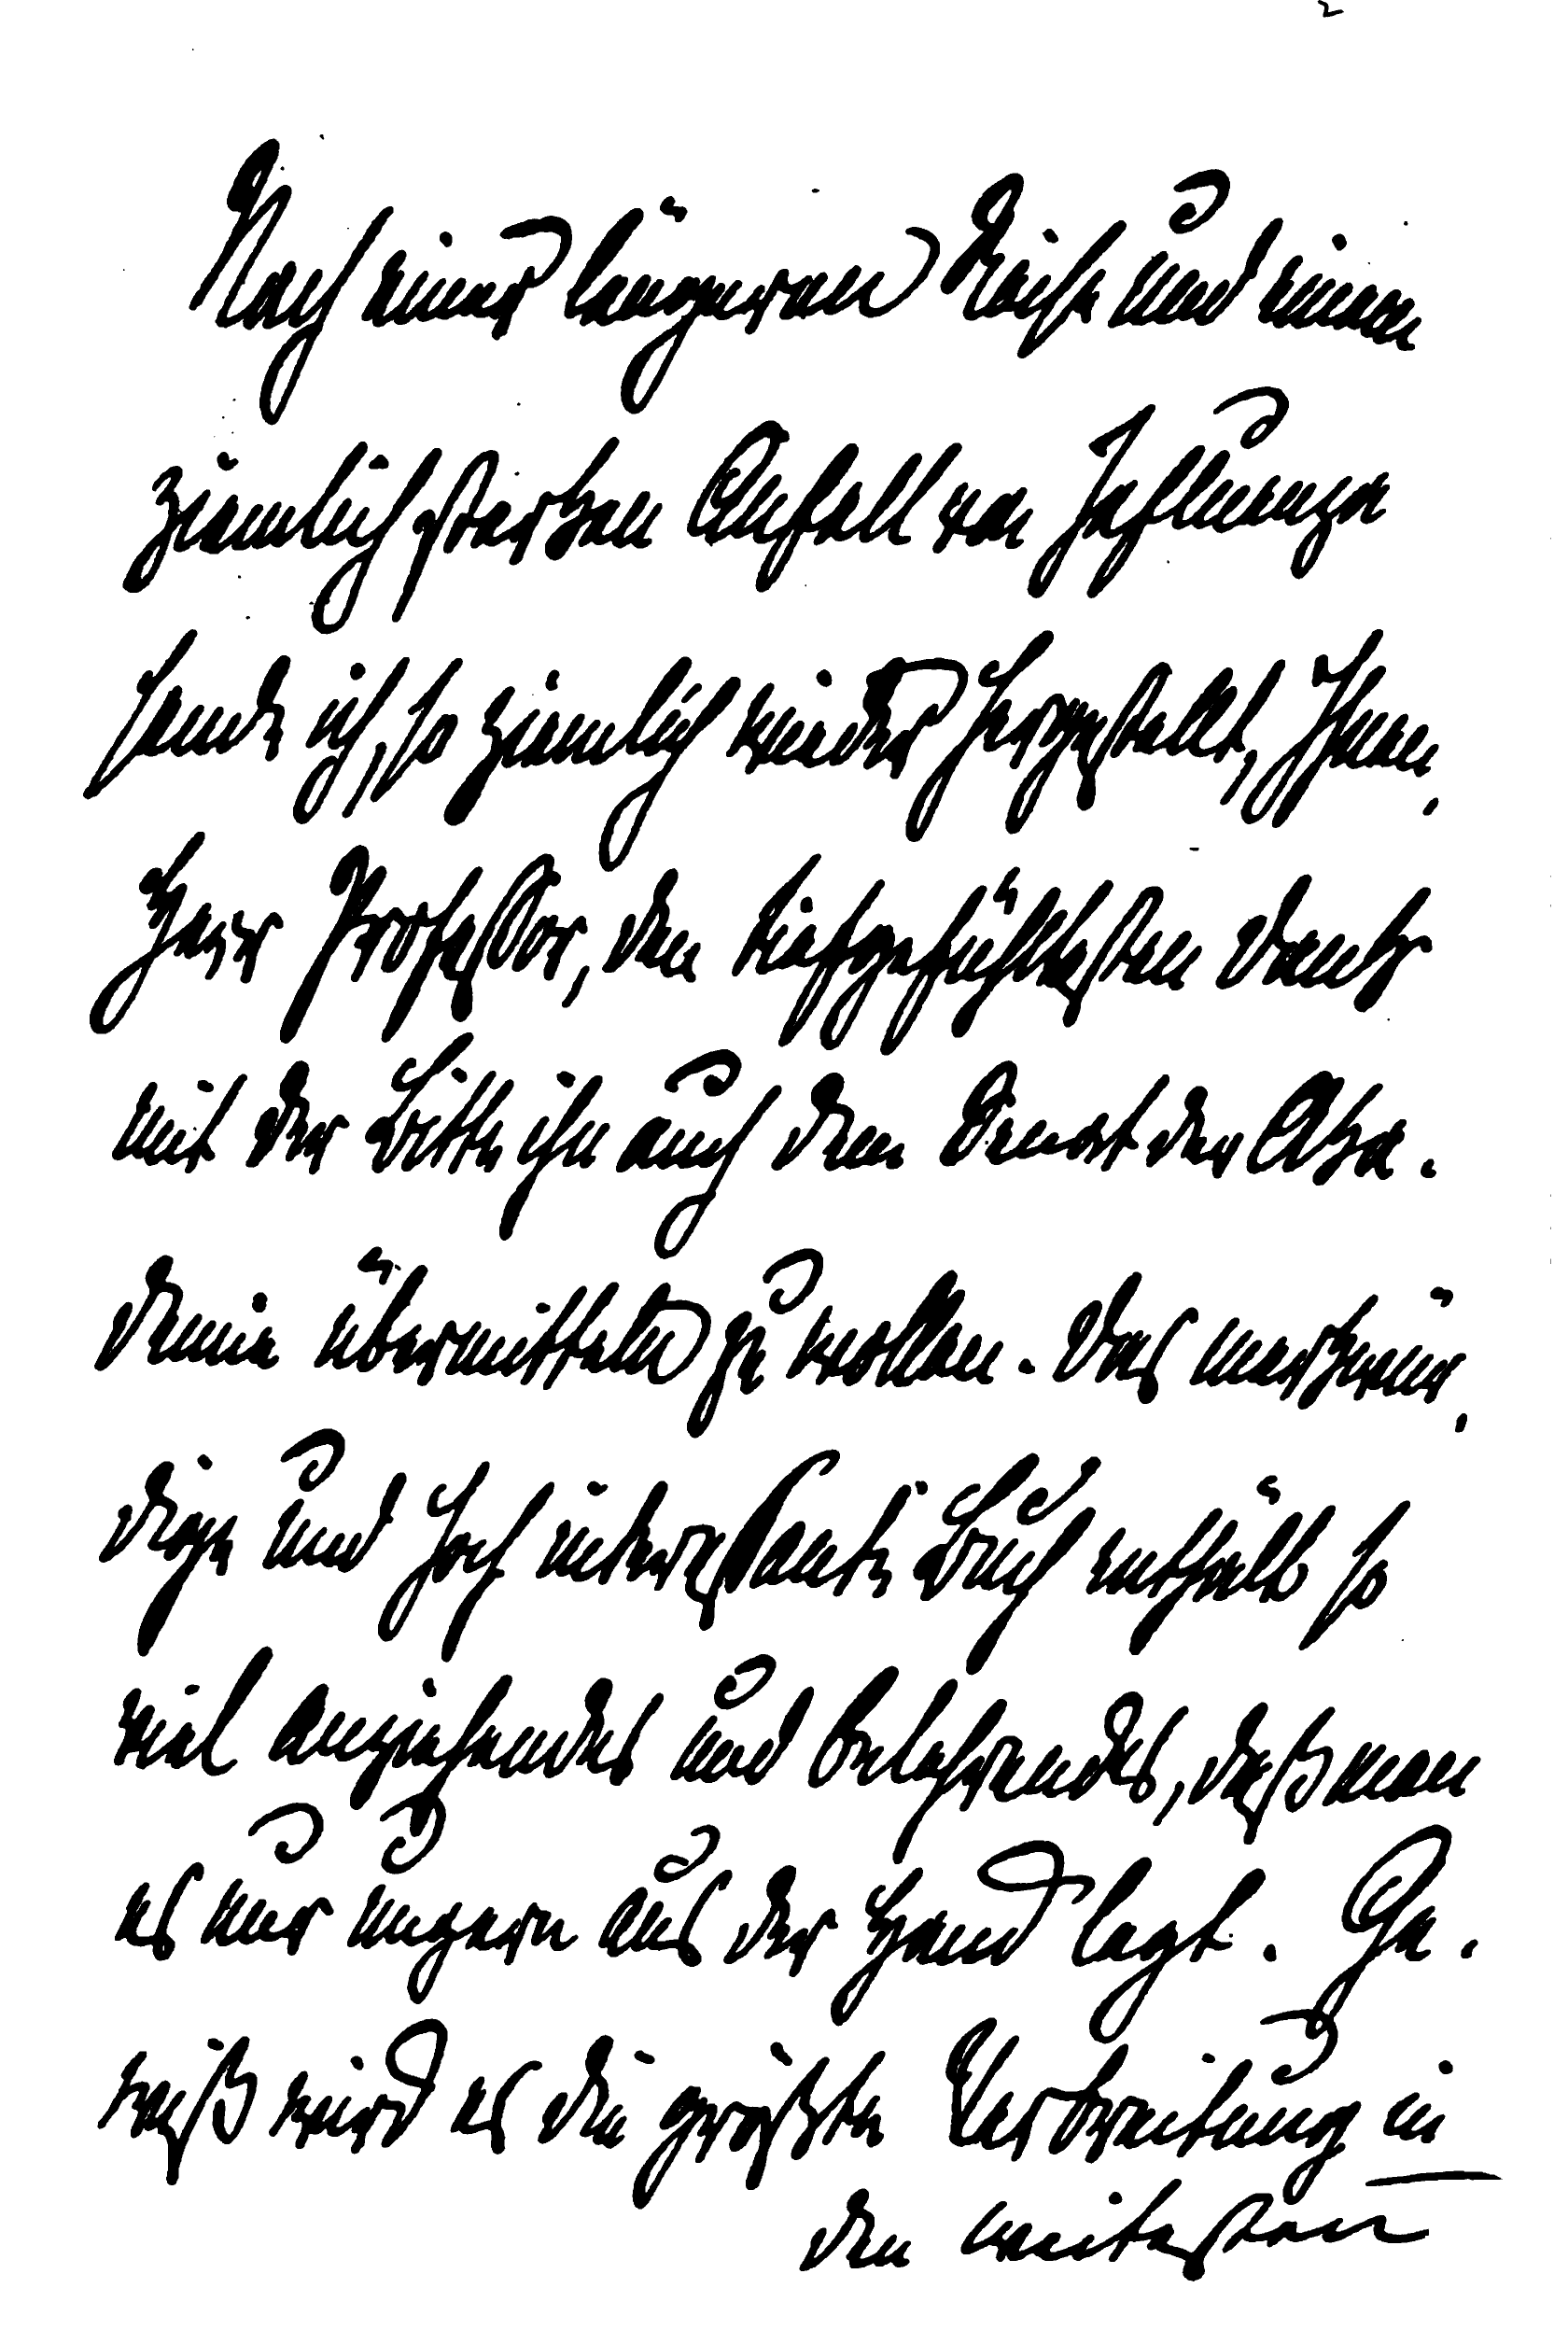 2
Nach einer längeren Reise und einem
ziemlich starken Anfall von Influenza
sende ich, so ziemlich wieder hergestellt, Ihnen,
Herr Professor, den tiefgefühltesten Dank
mit der Bitte ihn auch dem Vorstand der Aka-
demie übermitteln zu wollen. Das merkwür-
dige und hoch interessante Buch enthält so
viel Anziehendes und Belehrendes, daß man
es nur ungern aus der Hand legt. Ge-
wiß wird es die größte Verbreitung in
den weitesten